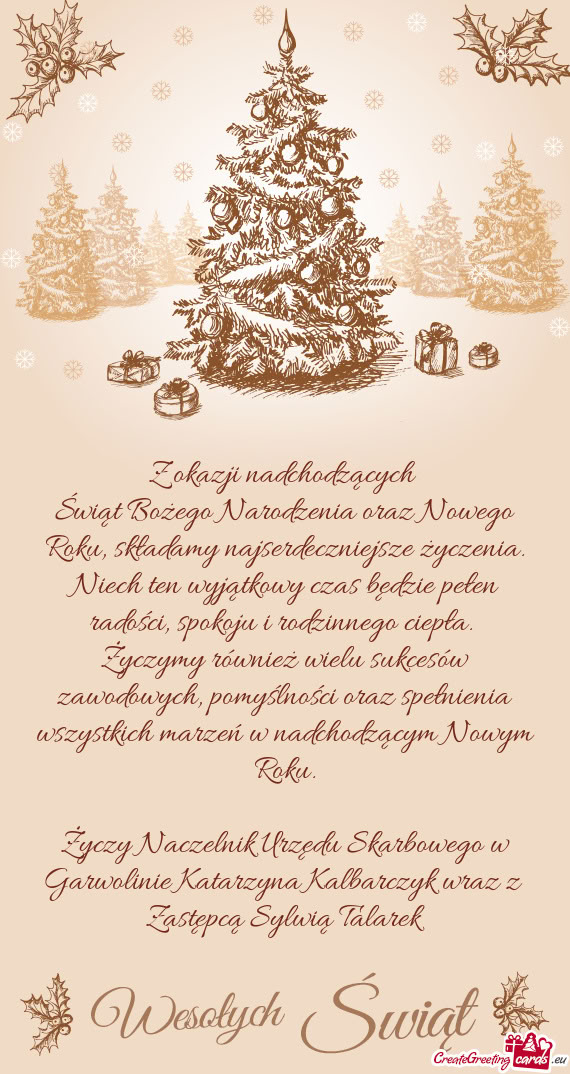 Z okazji nadchodzących
Świąt Bożego Narodzenia oraz Nowego
Roku, składamy najserdeczniejsze życzenia.
Niech ten wyjątkowy czas będzie pełen
radości, spokoju i rodzinnego ciepła.
Życzymy również wielu sukcesów
zawodowych, pomyślności oraz spełnienia
wszystkich marzeń w nadchodzącym Nowym
Roku.
Życzy Naczelnik Urzędu Skarbowego w
Garwolinie Katarzyna Kalbarczyk wraz z
Zastępcą Sylwią Talarek
Wesołych Świąt
CreateGreeting cards .eu